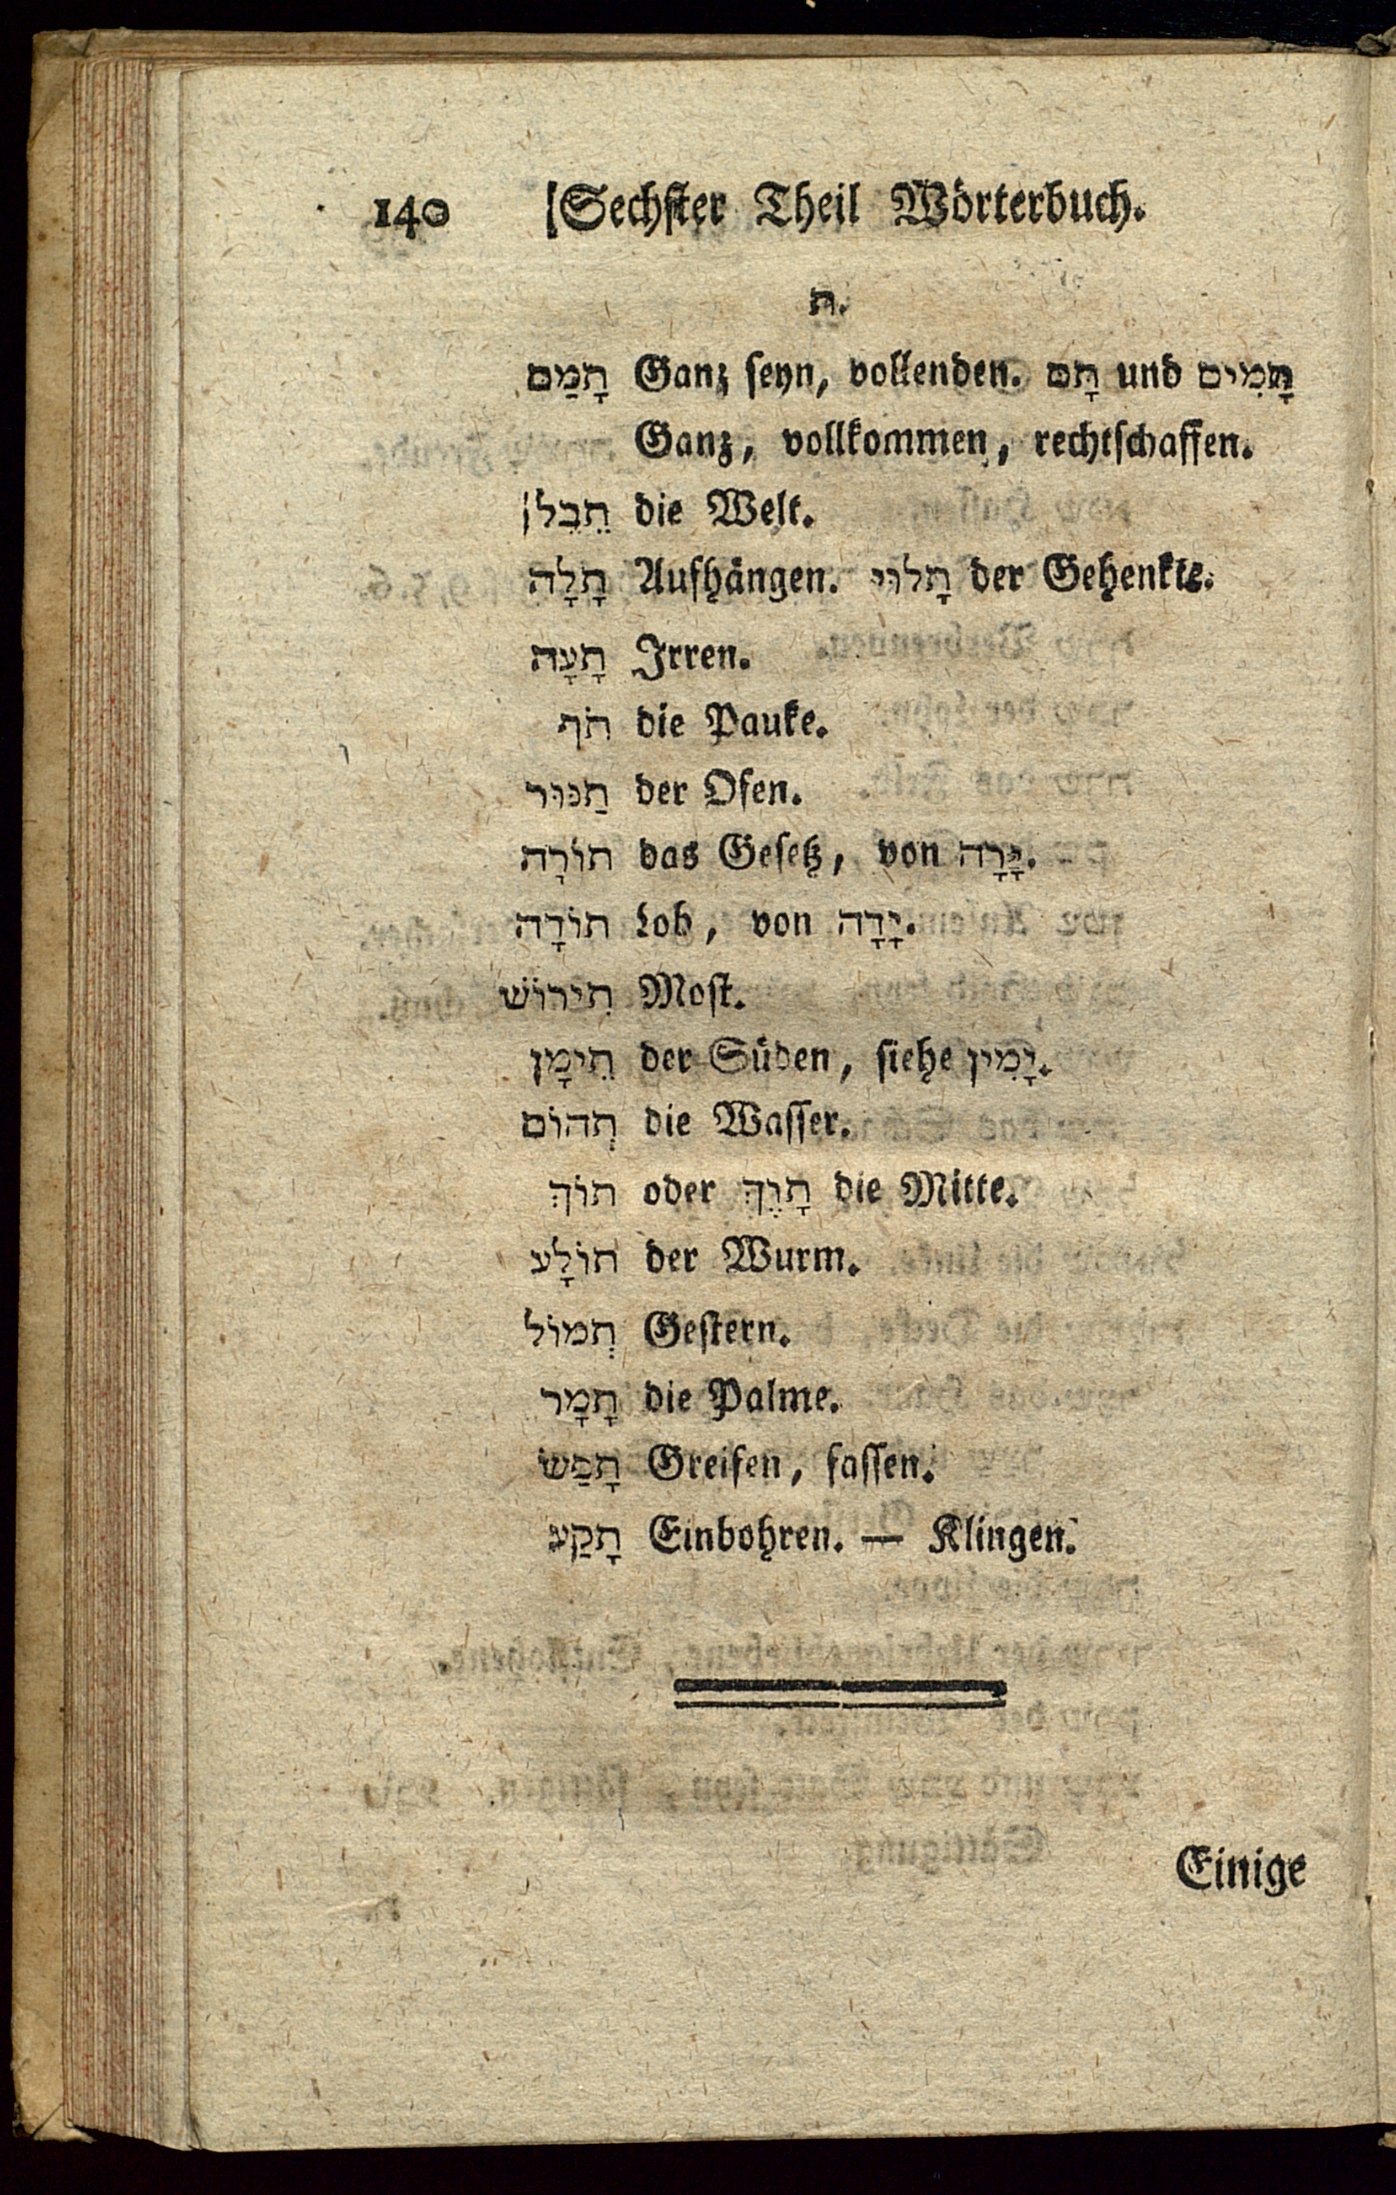 140 Sechster Theil Wörterbuch.
ת.
תָמַם Ganz seyn, vollenden. תָם und תָמִים
Ganz, vollkommen, rechtschaffen.
תֵבֵל die Welt.
תָלָה Aufhängen. תָלוּי der Gehenkte.
תָעָה Irren.
תֹף die Pauke.
תַנּוּר der Ofen.
תוֹרָה das Gesetz, von יָרָה.
תוֹדָה Lob, von יָדָה.
תִירוֹשׁ Most.
תֵימָן der Süden, siehe יָמִין.
תְהוֹם die Wasser.
תוֹךְ oder תָוֶךְ die Mitte.
תוֹלָע der Wurm.
תְמוֹל Gestern.
תָמָר die Palme.
תָפַשׂ Greifen, fassen.
תָקַע Einbohren. — Klingen.
Einige